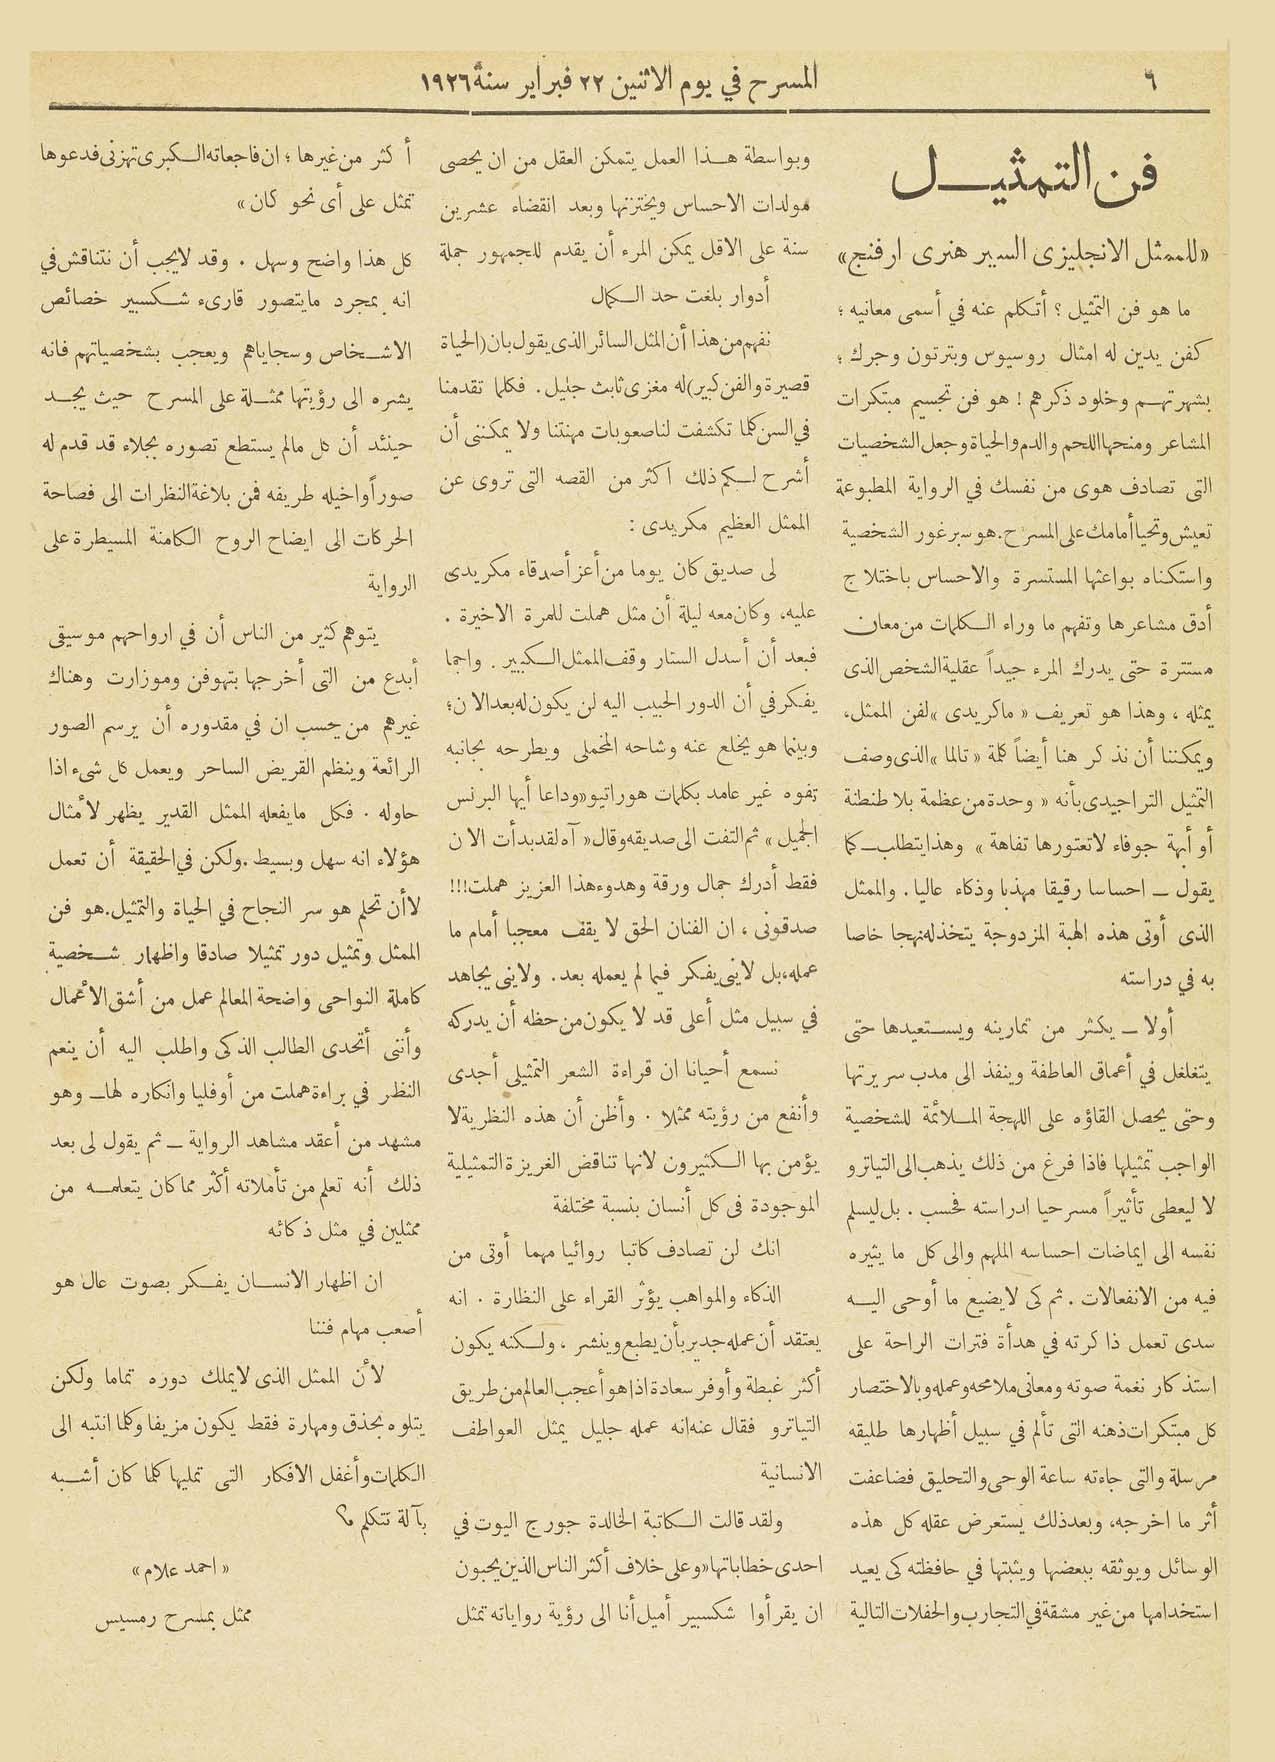 ٦
المسرح في يوم الاثنين ٢٢ فبراير سنة ١٩٢٦
فن التمثيـــل
«للممثل الانجليزى السير هنرى ارفنج»
ما هو فن التمثيل ؟ أتكلم عنه في أسمى معانيه ؛
كفن يدين له امثال روسيوس وبترتون وجرك ؛
بشهرتهـم وخلود ذكرهم ! هو فن تجسيم مبتكرات
المشاعر ومنحها اللحم والدم والحياة وجعل الشخصيات
التى تصادف هوى من نفسك في الرواية المطبوعة
تعيش وتحيا أمامك على المسرح . هو سبر غور الشخصية
واستكناه بواعثها المستسرة والاحساس باختلاج
أدق مشاعرها وتفهم ما وراء الـكلمات من معان
مستترة حتى يدرك المرء جيداً عقلية الشخص الذى
يمثله ، وهذا هو تعريف « ماكريدى » لفن الممثل ،
ويمكننا أن نذكر هنا أيضاً كلمة « تالما » الذى وصف
التمثيل التراجيدى بأنه « وحدة من عظمة بلا طنطنة
أو أبهة جوفاء لا تعتورها تفاهة » وهذا يتطلب ــ كما
يقول ــ احساسا رقيقا مهذبا وذكاء عاليا . والممثل
الذى أوتى هذه الهبة المزدوجة يتخذ له نهجا خاصا
به في دراسته
أولا ــ يكثر من تمارينه ويســتعيدها حتى
يتغلغل في أعماق العاطفة وينفذ الى مدب سريرتها
وحتى يحصل القاؤه على اللهجة المـلائمة للشخصية
الواجب تمثيلها فاذا فرغ من ذلك يذهب الى التياترو
لا ليعطى تأثيراً مسرحيا ادراسته فحسب . بل ليسلم
نفسه الى ايماضات احساسه الملهم والى كل ما يثيره
فيه من الانفعالات . ثم كى لا يضيع ما أوحى اليــه
سدى تعمل ذاكرته في هدأة فترات الراحة على
استذكار نغمة صوته ومعانى ملامحه وعمله وبالاختصار
كل مبتكرات ذهنه التى تألم في سبيل أظهارها طليقه
مرسلة والتى جاءته ساعة الوحى والتحليق فضاعفت
أثر ما اخرجه ، وبعد ذلك يستعرض عقله كل هذه
الوسائل ويوثقه ببعضها ويثبتها في حافظته كى يعيد
استخدامها من غير مشقة في التجارب والحفلات التالية
وبواسطة هـذا العمل يتمكن العقل من ان يحصى
مولدات الاحساس ويختزنها وبعد انقضاء عشرين
سنة على الاقل يمكن المرء أن يقدم للجمهور جملة
أدوار بلغت حد الـكمال
نفهم من هذا أن المثل السائر الذى يقول بان (الحياة
قصيرة والفن كبير) له مغزى ثابث جليل . فكلما تقدمنا
في السن كلما تكشفت لنا صعوبات مهنتنا ولا يمكننى أن
أشرح لـكم ذلك اكثر من القصه التى تروى عن
الممثل العظيم مكريدى :
لى صديق كان يوما من أعز أصدقاء مكريدى
عليه ، وكان معه ليلة أن مثل هملت للمرة الاخيرة .
فبعد أن أسدل الستار وقف الممثل الـكبير . واجما
يفكر في أن الدور الحبيب اليه لن يكون له بعد الان ؛
وبينما هو يخلع عنه وشاحه المخملى ويطرحه بجانبه
تفوه غير عامد بكلمات هوراتيو « وداعا أيها البرنس
الجميل » ثم التفت الى صديقه وقال « آه لقد بدأت الان
فقط أدرك جمال ورقة وهدوء هذا العزيز هملت !!!
صدقونى ، ان الفنان الحق لا يقف معجبا أمام ما
عمله ، بل لا ينى يفكر فيما لم يعمله بعد . ولا ينى يجاهد
في سبيل مثل أعلى قد لا يكون من حظه أن يدركه
نسمع أحيانا ان قراءة الشعر التمثيلى أجدى
وأنفع من رؤيته ممثلا . وأظن أن هذه النظرية لا
يؤمن بها الـكثيرون لانها تناقض الغريزة التمثيلية
الموجودة فى كل أنسان بنسبة مختلفة
انك لن تصادف كاتبا روائيا مهما أوتى من
الذكاء والمواهب يؤثر القراء على النظارة . انه
يعتقد أن عمله جدير بأن يطبع وينشر ، ولـكنه يكون
أكثر غبطة وأوفر سعادة اذا هو أعجب العالم من طريق
التياترو فقال عنه انه عمله جليل يمثل العواطف
الانسانية
ولقد قالت الـكاتبة الخالدة جورج اليوت في
احدى خطاباتها « وعلى خلاف أكثر الناس الذين يحبون
ان يقرأوا شكسبير أميل أنا الى رؤية رواياته تمثل
أكثر من غيرها ؛ ان فاجعاته الـكبرى تهزنى فدعوها
تمثل على أى نحو كان »
كل هذا واضح وسهل . وقد لا يجب أن نتناقش في
انه بمجرد ما يتصور قارىء شـكسبير خصائص
الاشـخاص وسجاياهم ويعجب بشخصياتهم فانه
يشره الى رؤيتها ممثـلة على المسرح حيث يجـد
حينئد أن كل مالم يستطع تصوره بجلاء قد قدم له
صوراً واخيله طريفه فمن بلاغة النظرات الى فصاحة
الحركات الى ايضاح الروح الكامنة المسيطرة على
الرواية
يتوهم كثير من الناس أن في ارواحهم موسيقى
أبدع من التى أخرجها بتهوفن وموزارت وهناك
غيرهم من يحسب ان في مقدوره أن يرسم الصور
الرائعة وينظم القريض الساحر ويعمل كل شىء اذا
حاوله . فكل ما يفعله الممثل القدير يظهر لأمثال
هؤلاء انه سهل وبسيط . ولكن في الحقيقة أن تعمل
لا أن تحلم هو سر النجاح في الحياة والتمثيل . هو فن
الممثل وتمثيل دور تمثيلا صادقا واظهار شـخصية
كاملة النواحى واضحة المعالم عمل من أشق الأعمال
وأننى أتحدى الطالب الذكى واطلب اليه أن ينعم
النظر في براءة هملت من أوفليا وانكاره لها ــ وهو
مشهد من أعقد مشاهد الرواية ــ ثم يقول لى بعد
ذلك أنه تعلم من تأملاته أكثر مما كان يتعلمـه من
ممثلين في مثل ذكائه
ان اظهار الانسـان يفـكر بصوت عال هو
أصعب مهام فننا
لأن الممثل الذى لا يملك دوره تماما ولكن
يتلوه بحذق ومهارة فقط يكون مزيفا وكلما انتبه الى
الـكلمات وأغفل الافكار التى تمليها كلما كان أشـبه
بآلة تتكلم ؟
« احمد علام »
ممثل بمسرح رمسيس